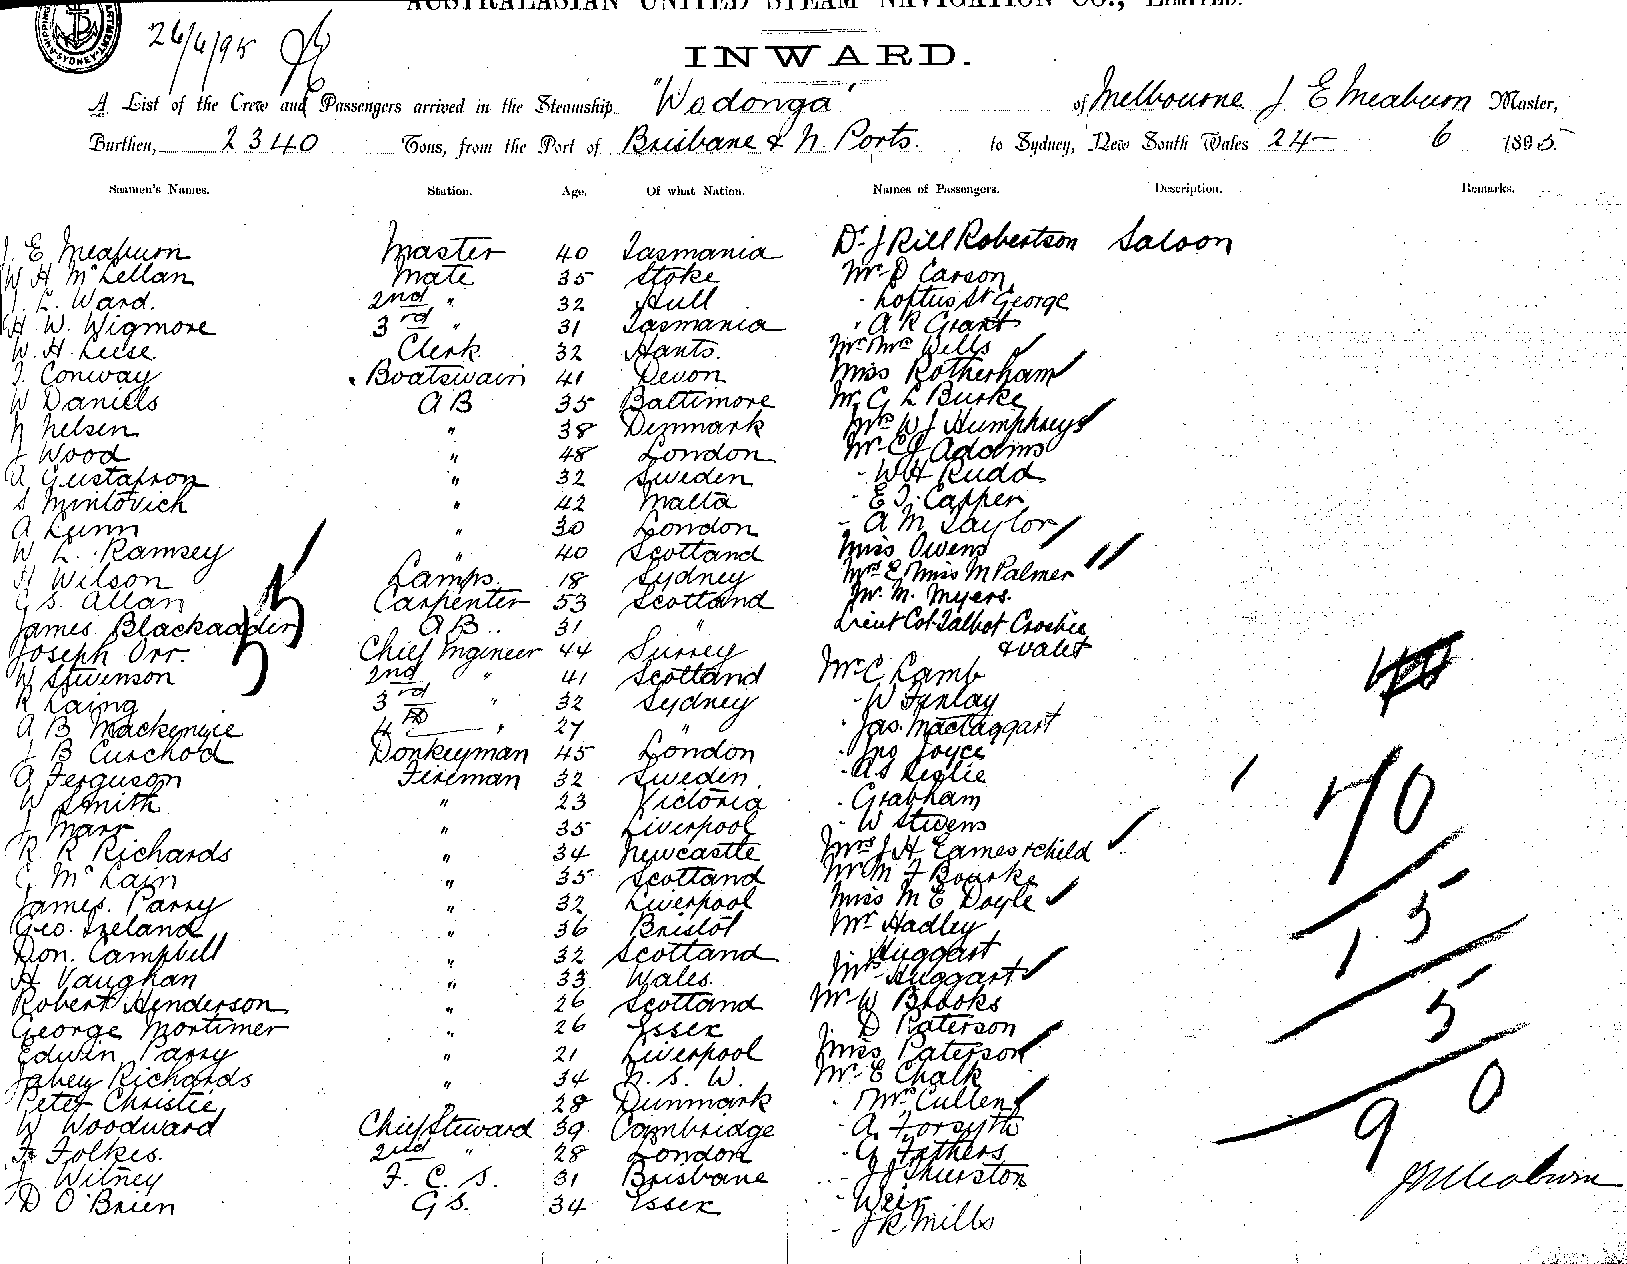 AUSTRALASIAN UNITED STEAM NAVIGATION CO., LIMITED.
SYDNEY
26/6/95
INWARD.
A List of the Crew and Passengers arrived in the Steamship "Wodonga" of Melbourne J E Meaburn Master,
Burthen, 2340 Tons, from the Port of Brisbane & N. Ports. to Sydney, New South Wales 24 6 1895.
Seamen's Names. Station. Age. Of what Nation. Names of Passengers. Description. Remarks.
J. E Meaburn Master 40 Tasmania Dr J Rill Robertson Saloon
W H McLellan Mate 35 Stoke Mr D Carson
J L. Ward. 2nd " 32 Hull - Loftus St George
H. W. Wigmore 3rd " 31 Tasmania " A R Grant
W. H. Leese Clerk 32 Hants. Mr Mrs Wells
J. Conway Boatswain 41 Devon Miss Rotherham
W Daniels A B 35 Baltimore Mr C L Burke
N Nelsen " 38 Denmark Mrs W J Humphreys
J Wood " 48 London Mr C J Addams
A Gustafson " 32 Sweden - W H Rudd
S Mintovich " 42 Malta - E J. Capper
A Lunn " 30 London - A M Taylor
W L. Ramsey " 40 Scotland Miss Owens
H Wilson Lamps. 18 Sydney Mrs E Miss M Palmer
G S. Allan Carpenter 53 Scotland Mr. M. Myers.
James Blackadder A B.. 31 " Lieut Col. Talbot Crosbie
Joseph Orr. Chief Engineer 44 Surrey & valet
W Stevenson 2nd " 41 Scotland Mr C Lamb
R Laing 3rd " 32 Sydney - W Finlay
A B Mackenzie 4th " 27 " - Jas. Mactaggart
J B Curchod Donkeyman 45 London - Jno Joyce
A Ferguson Fireman 32 Sweden - A S Leslie
W Smith " 23 Victoria - Grabham
J Marr " 35 Liverpool - W Stevens
R R Richards " 34 Newcastle Mrs J H Eames & child
C McLain " 35 Scotland Mr M F Bourke
James. Parry " 32 Liverpool Miss M E Doyle
Geo. Ireland " 36 Bristol Mr Hadley
Don. Campbell " 32 Scotland " Huggart
H Vaughan " 33 Wales. Mrs Huggart
Robert Henderson " 26 Scotland Mr W Brooks
George Mortimer " 26 Essex " D Paterson
Edwin Parry " 21 Liverpool Miss Paterson
Jabey Richards " 34 N. S. W. Mr E Chalk
Peter Christie " 28 Dunmark - McCullen
W Woodward Chief Steward 39 Cambridge - A Forsyth
F. Folkes. 2nd " 28 London - G Fathers
J Witney F. C. S. 31 Brisbane - J J Thurston
D O'Brien G S. 34 Essex - Weir
- J R Mills
1 70
1 5
5
9 0
J E Meaburn